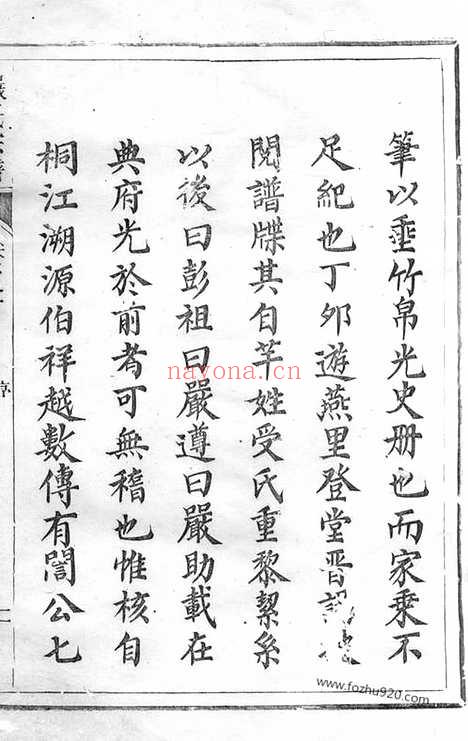 筆以垂竹帛光史册也而家乗不
足紀也丁夘遊燕里登堂晋謁
閲譜牒其自芊姓受氏重黎絜糸
以後曰彭祖曰嚴遵曰嚴助載在
典府光於前者可無稽也惟核自
桐江溯源伯祥越數傳有誾公七
序
nayona.cn
www.fozhu920.com